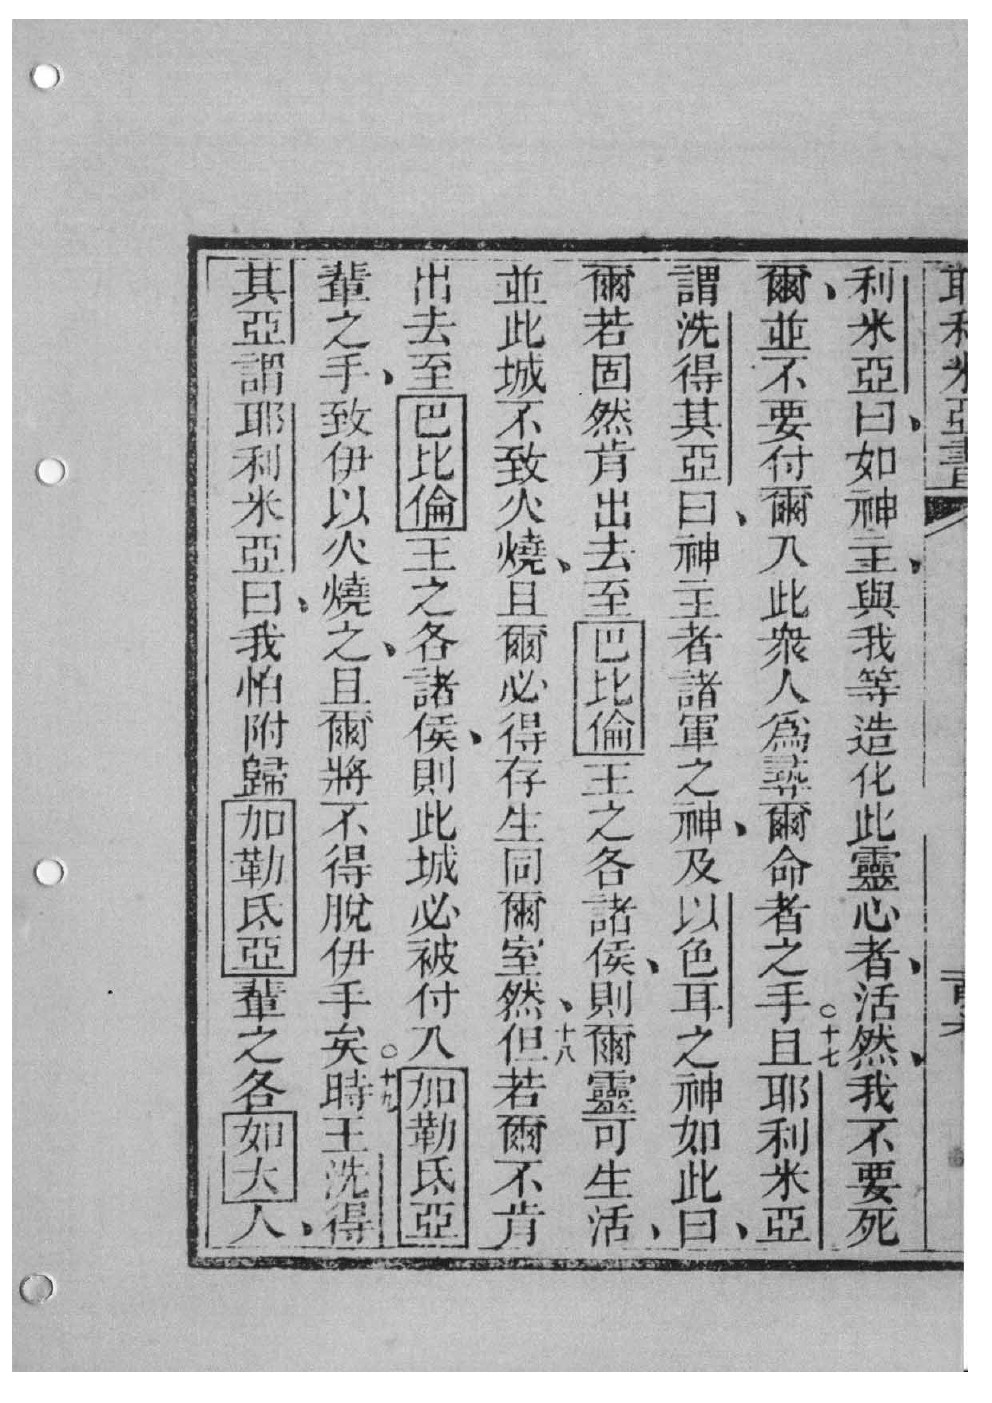 耶利米亞書
利米亞曰、如神主、與我等造化此靈心者、活然、我不要死
爾、並不要付爾入此衆人爲尋爾命者之手○十七且耶利米亞
謂洗得其亞曰、神主者諸軍之神、及以色耳之神如此曰、
爾若固然肯出去至巴比倫王之各諸侯、則爾靈可生活、
並此城不致火燒、且爾必得存生同爾室然、十八但若爾不肯
出去至巴比倫王之各諸侯、則此城必被付入加勒氐亞
輩之手、致伊以火燒之、且爾將不得脫伊手矣○十九時王洗得
其亞謂耶利米亞曰、我怕附歸加勒氐亞輩之各如大人、